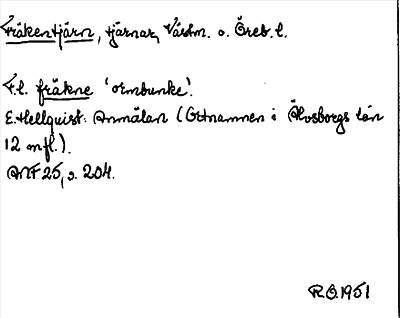 Fräkentjärn, tjärnar, Västm. o. Öreb. l.
F.l. fräkne 'ormbunke'.
E. Hellquist: Anmälan (Ortnamnen i Älvsborgs län
12 m fl.).
ANF 25, s. 204.
R.O. 1951